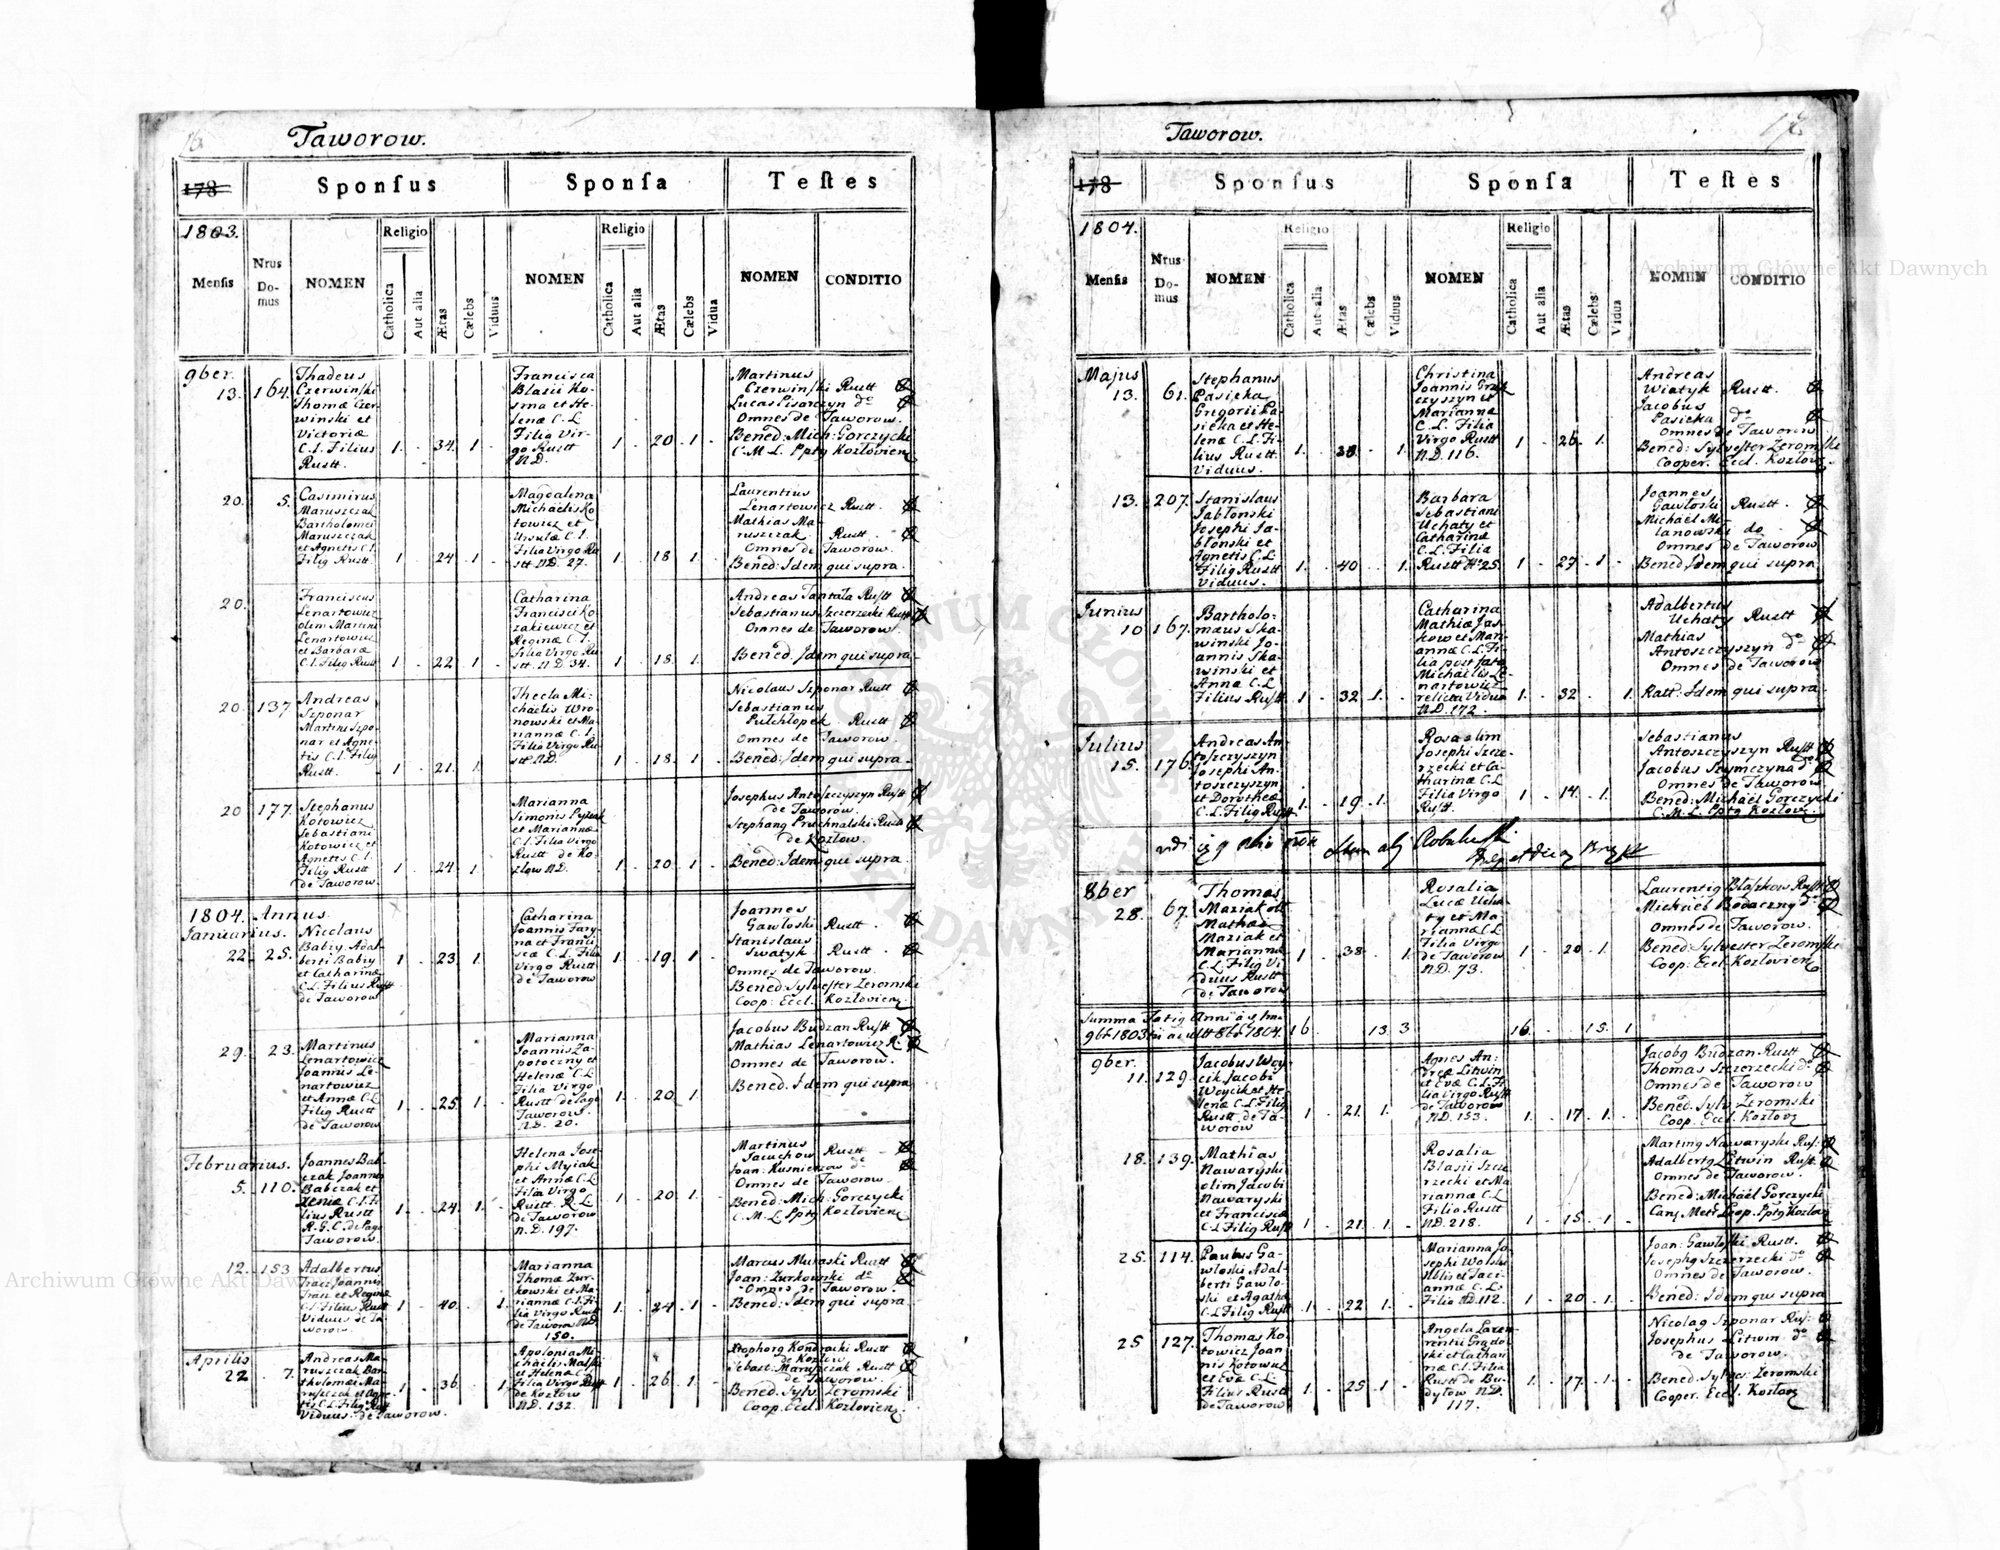 Taworow.
173 Sponſus Sponſa Teſtes
1803.
Menſis Nrus Domus NOMEN Religio Catholica Aut alia Ætas Cælebs Viduus NOMEN Religio Catholica Aut alia Ætas Cælebs Vidua NOMEN CONDITIO
9ber.
13. 164.
Thadeus
Czerwinſki
Thomæ Czer-
winski et
Victoriæ
C.L. Filius
Rustt.
1. 34. 1.
Francisca
Blasii Ko-
sma et He-
lenæ C.L
Filia Vir-
go Rustt
N.D.
1 20 1
Martinus
Czerwinſki Rustt
Lucas Pisarczyn do
Omnes de Taworow.
Bened: Mich: Gorczycki
C.M.L. Pptg Kozłovien
20. 5.
Casimirus
Maruszczak
Bartholomei
Maruszczak
et Agnetis C.L
Filig Rustt
1 24 1
Magdalena
Michaelis Ko
towicz et
Ursulæ C.L.
Filia Virgo Ru
stt N.D. 27.
1 18 1
Laurentius
Lenartowicz Rustt.
Mathias Ma-
ruszczak Rustt.
Omnes de Taworow.
Bened: Idem qui supra.
20.
Franciscus
Lenartowicz
olim Martini
Lenartowicz
et Barbaræ
C.L. Filig Rustt
1 22 1
Catharina
Francisci Ko
zakiewicz et
Reginæ C.L.
Filia Virgo Ru
stt. N.D. 34.
1 18. 1.
Andreas Tantała Ruſtt
Sebastianus Szczerzecki Rustt
Omnes de Taworow.
Bened. Idem qui supra
20. 137
Andreas
Szponar
Martini Szpo-
nar et Agne-
tis C.L. Filig
Rustt.
1 21 1
Thecla Mi-
chaelis Wro-
nowski et Ma-
riannæ C.L.
Filia Virgo Ru-
stt N.D.
1 18 1
Nicolaus Szponar Rustt
Sebastianus
Pulchlopek Rustt
Omnes de Taworow.
Bened: Idem qui supra.
20 177.
Stephanus
Kotowicz
Sebastiani
Kotowicz et
Agnetis C.L.
Filig Rustt
de Taworow.
1 24 1.
Marianna
Simonis
et Mariannæ
C.L. Filia Virgo
Rustt de Ko-
zlow N.D.
1 20 1
Josephus Antoſzczyszyn Rustt
de Taworow
Stephang Pruchnalski Rustt
de Kozłow.
Bened: Idem qui supra.
1804. Annus
Januarius.
22. 25.
Nicolaus
Babiy Adal-
berti Babiy
et Catharinæ
C.L. Filius Rustt
de Taworow
1 23 1.
Catharina
Joannis Tary-
na et Franci-
scæ C.L. Filia
Virgo Rustt
de Taworow
1. 19 1
Joannes
Gawłoski Rustt.
Stanislaus
Swatyk Rustt.
Omnes de Taworow.
Bened: Sylveſter Zeromski
Coop: Eccl. Kozłovien
29. 23.
Martinus
Lenartowicz
Joannis Le-
nartowicz
et Annæ C.L
Filig Rustt
de Taworow
1. 25. 1.
Marianna
Joannis Za-
potoczny et
Helenæ C.L
Filia Virgo
Rustt de Pago
Taworow.
N.D. 20.
1. 20 1.
Jacobus Budzan Ruſtt
Mathias Lenartowicz R.
Omnes de Taworow.
Bened: Idem qui supra
Februarius.
5. 110.
Joannes Bab-
czak Joannis
Babczak et
Xeniæ C.L. Fi-
lius Rustt
R.G.C. de Pago
Taworow.
1. 24. 1.
Helena Jose-
phi Myiak
et Annæ C.L
Filia Virgo
Rustt. R.L.
de Taworow
N.D. 197.
1 20 1.
Martinus
Jacuchow Rustt
Joan: Kusnierzow do
Omnes de Taworow.
Bened: Mich: Gorczycki
C.M.L. Pptg Kozłovien
12. 153
Adalbertus
Tracz Joannis
Tracz et Reginæ
C.L. Filius Rustt
Viduus de Ta
worow.
1 40. 1.
Marianna
Thomæ Zur-
kowski et Ma-
riannæ C.L. Fi-
lia Virgo Rustt
de Taworow N.D
150.
1. 24 1
Marcus Muraski Rustt
Joan: Zurkowski do
Omnes de Taworow.
Bened: Idem qui supra
Aprilis
22 7.
Andreas Ma-
ruszczak Bar-
tholomæi Ma-
ruszczak et Agne-
tis C.L. Filig Rust
Viduus. de Taworow.
1 36. 1
Apolonia Mi-
chaelis
et Helenæ C.L
Filia Virgo Rustt
de Kozłow
N.D. 132.
1. 26. 1
Kondracki Rustt
de Kozłow
Sebast: Maruszczak Rustt
de Taworow.
Bened: Sylv: Zeromski
Coop. Eccl. Kozłovien
Taworow.
173 Sponſus Sponſa Teſtes
1804.
Menſis Nrus Domus NOMEN Religio Catholica Aut alia Ætas Cælebs Viduus NOMEN Religio Catholica Aut alia Ætas Cælebs Vidua NOMEN CONDITIO
Majus
13. 61.
Stephanus
Pasieka
Gregorii Pa-
sieka et He-
lenæ C.L. Fi-
lius Rustt.
Viduus.
1. 1.
Christina
Joannis
czyszyn et
Mariannæ
C.L. Filia
Virgo Rustt
N.D. 116.
1 26. 1.
Andreas
Wiatyk Rustt.
Jacobus
Pasieka do
Omnes de Taworow
Bened: Sylveſter Zeromſki
Cooper. Eccl. Kozłov
13. 207.
Stanislaus
Jabłonski
Josephi Ja-
błonski et
Agnetis C.L.
Filig Rustt
Viduus.
1. 40 1.
Barbara
Sebastiani
Uchaty et
Catharinæ
C.L. Filia
Rustt No 25
1 27 1
Joannes
Gawłoski Rustt.
Michaël Mi-
lanowski do
Omnes de Taworow
Bened Idem qui supra
Junius
10 167.
Bartholo-
mæus Ska-
winski Jo-
annis Ska
winski et
Annæ C.L
Filius Ruſtt
1 32 1.
Catharina
Mathiæ Jas-
kow et Mari-
annæ C.L. Fi-
lia post fata
Michaelis Le-
nartowicz
relicta Vidua
N.D. 172.
1. 32. 1.
Adalbertus
Uchaty Rustt
Mathias
Antoszczyszyn do
Omnes de Taworow
Ratt. Idem qui supra.
Julius
15. 176.
Andreas An-
toſzczyszyn
Josephi An-
toszczyszyn
et Dorotheæ
C.L. Filig Ruſtt
1. 19. 1.
Rosa olim
Josephi Szcze-
rzecki et Ca-
tharinæ C.L
Filia Virgo
Ruſtt.
1 14. 1.
Sebastianus
Antoszczyszyn Ruſtt
Jacobus Szymczyna do
Omnes de Taworow
Bened: Michaël Gorczycki
C.M.L. Pptg Kozłov
8ber
28. 67.
Thomas
Maziak olt
Mathæi
Maziak et
Mariannæ
C.L. Filig Vi-
duus Rustt
de Taworow
1 38 1.
Rosalia
Lucæ Ucha-
ty et Ma-
riannæ C.L
Filia Virgo
de Taworow
N.D. 73.
1. 20 1.
Laurentig Błaſzkow Ruſtt
Michaël Bodaczny do
Omnes de Taworow.
Bened: Sylveſter Zeromſki
Coop: Eccl. Kozłovien
Summa Totig Anni a
9br 1803 8br 1804. 16. 13 3 16. 15. 1
9ber.
11. 129.
Jacobus Woy-
cik Jacobi
Woycik et He-
lenæ C.L. Filig
Rustt. de Ta-
worow
1 21. 1.
Agnes An-
dreæ Litwin
et Evæ C.L. Fi-
lia Virgo Ruſtt
de Taworow
N.D. 153.
1. 17. 1.
Jacobg Budzan Rustt
Thomas Szczerzecki do
Omnes de Taworow
Bened. Sylv. Zeromski
Coop. Eccl. Kozłov
18. 139.
Mathias
Nawaryski
olim Jacobi
Nawaryski
et Franciscæ
C.L Filig Ruſtt
1 21. 1.
Rosalia
Blasii Szcze-
rzecki et Ma-
riannæ C.L
Filia Rustt
N.D. 218.
1 15. 1.
Marting Nawaryski Ruſ:
Adalbertg Litwin Rustt.
Omnes de Taworow.
Bened: Michaël Gorczycki
Can Metr Leop. Pptg Kozłov
25. 114.
Paulus Ga-
włoski Adal-
berti Gawło-
ski et Agathæ
C.L Filig Ruſtt
1. 22 1.
Marianna Jo-
sephi
Filia N.D. 112.
1 20 1.
Joan: Gawłoſki Rustt.
Josephg Szczerzecki do
Omnes de Taworow.
Bened: Idem qui supra
25 127.
Thomas Ko-
towicz Joan-
nis Kotowicz
et Evæ C.L.
Filius Rustt
de Taworow
1. 25. 1.
Angela Lauren-
rentii Grado-
ski et Cathari-
næ C.L. Filia
Rustt de Bu-
dyłow N.D.
117.
1. 17. 1.
Nicolag Szponar Ruſ:
Josephus Litwin do
de Taworow.
Bened. Sylves: Zeromski
Cooper. Eccl. Kozłov
Archiwum Główne Akt Dawnych
Archiwum Główne Akt Dawnych
ARCHIWUM GŁÓWNE AKT DAWNYCH